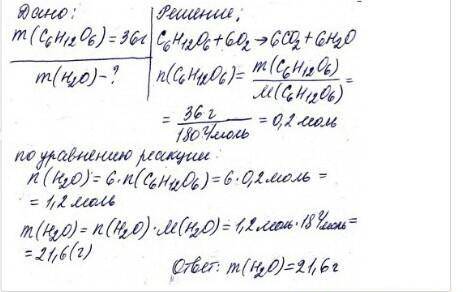 Дано:
m(C6H12O6)=36г
m(H2O)-?
Решение:
C6H12O6+6O2→6CO2+6H2O
n(C6H12O6)= m(C6H12O6)/M(C6H12O6) =
= 36г/180г/моль = 0,2 моль
по уравнению реакции:
n(H2O)=6·n(C6H12O6)=6·0,2моль=
=1,2моль
m(H2O)=n(H2O)·M(H2O)=1,2моль·18г/моль=
=21,6(г)
Ответ: m(H2O)=21,6г